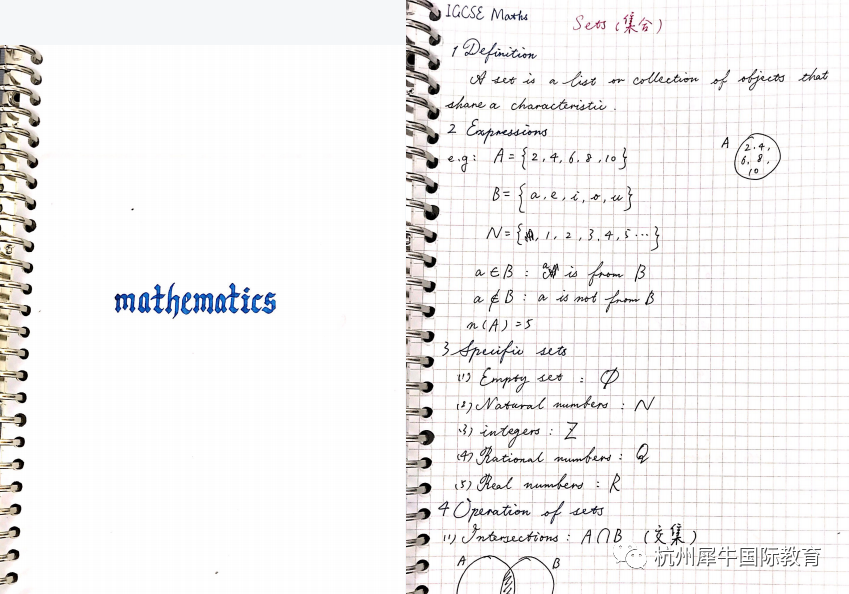 mathematics
IGCSE Maths
Sets (集合)
1 Definition
A set is a list or collection of objects that
share a characteristic.
2 Expressions
e.g: A = {2, 4, 6, 8, 10}
A
2, 4,
6, 8,
10
B = {a, e, i, o, u}
N = {1, 2, 3, 4, 5 ...}
a ∈ B : a is from B
a ∉ B : a is not from B
n(A) = 5
3 Specific sets
(1) Empty set : Ø
(2) Natural numbers : N
(3) integers : Z
(4) Rational numbers : Q
(5) Real numbers : R
4 Operation of sets
(1) Intersections : A∩B (交集)
A B
杭州犀牛国际教育